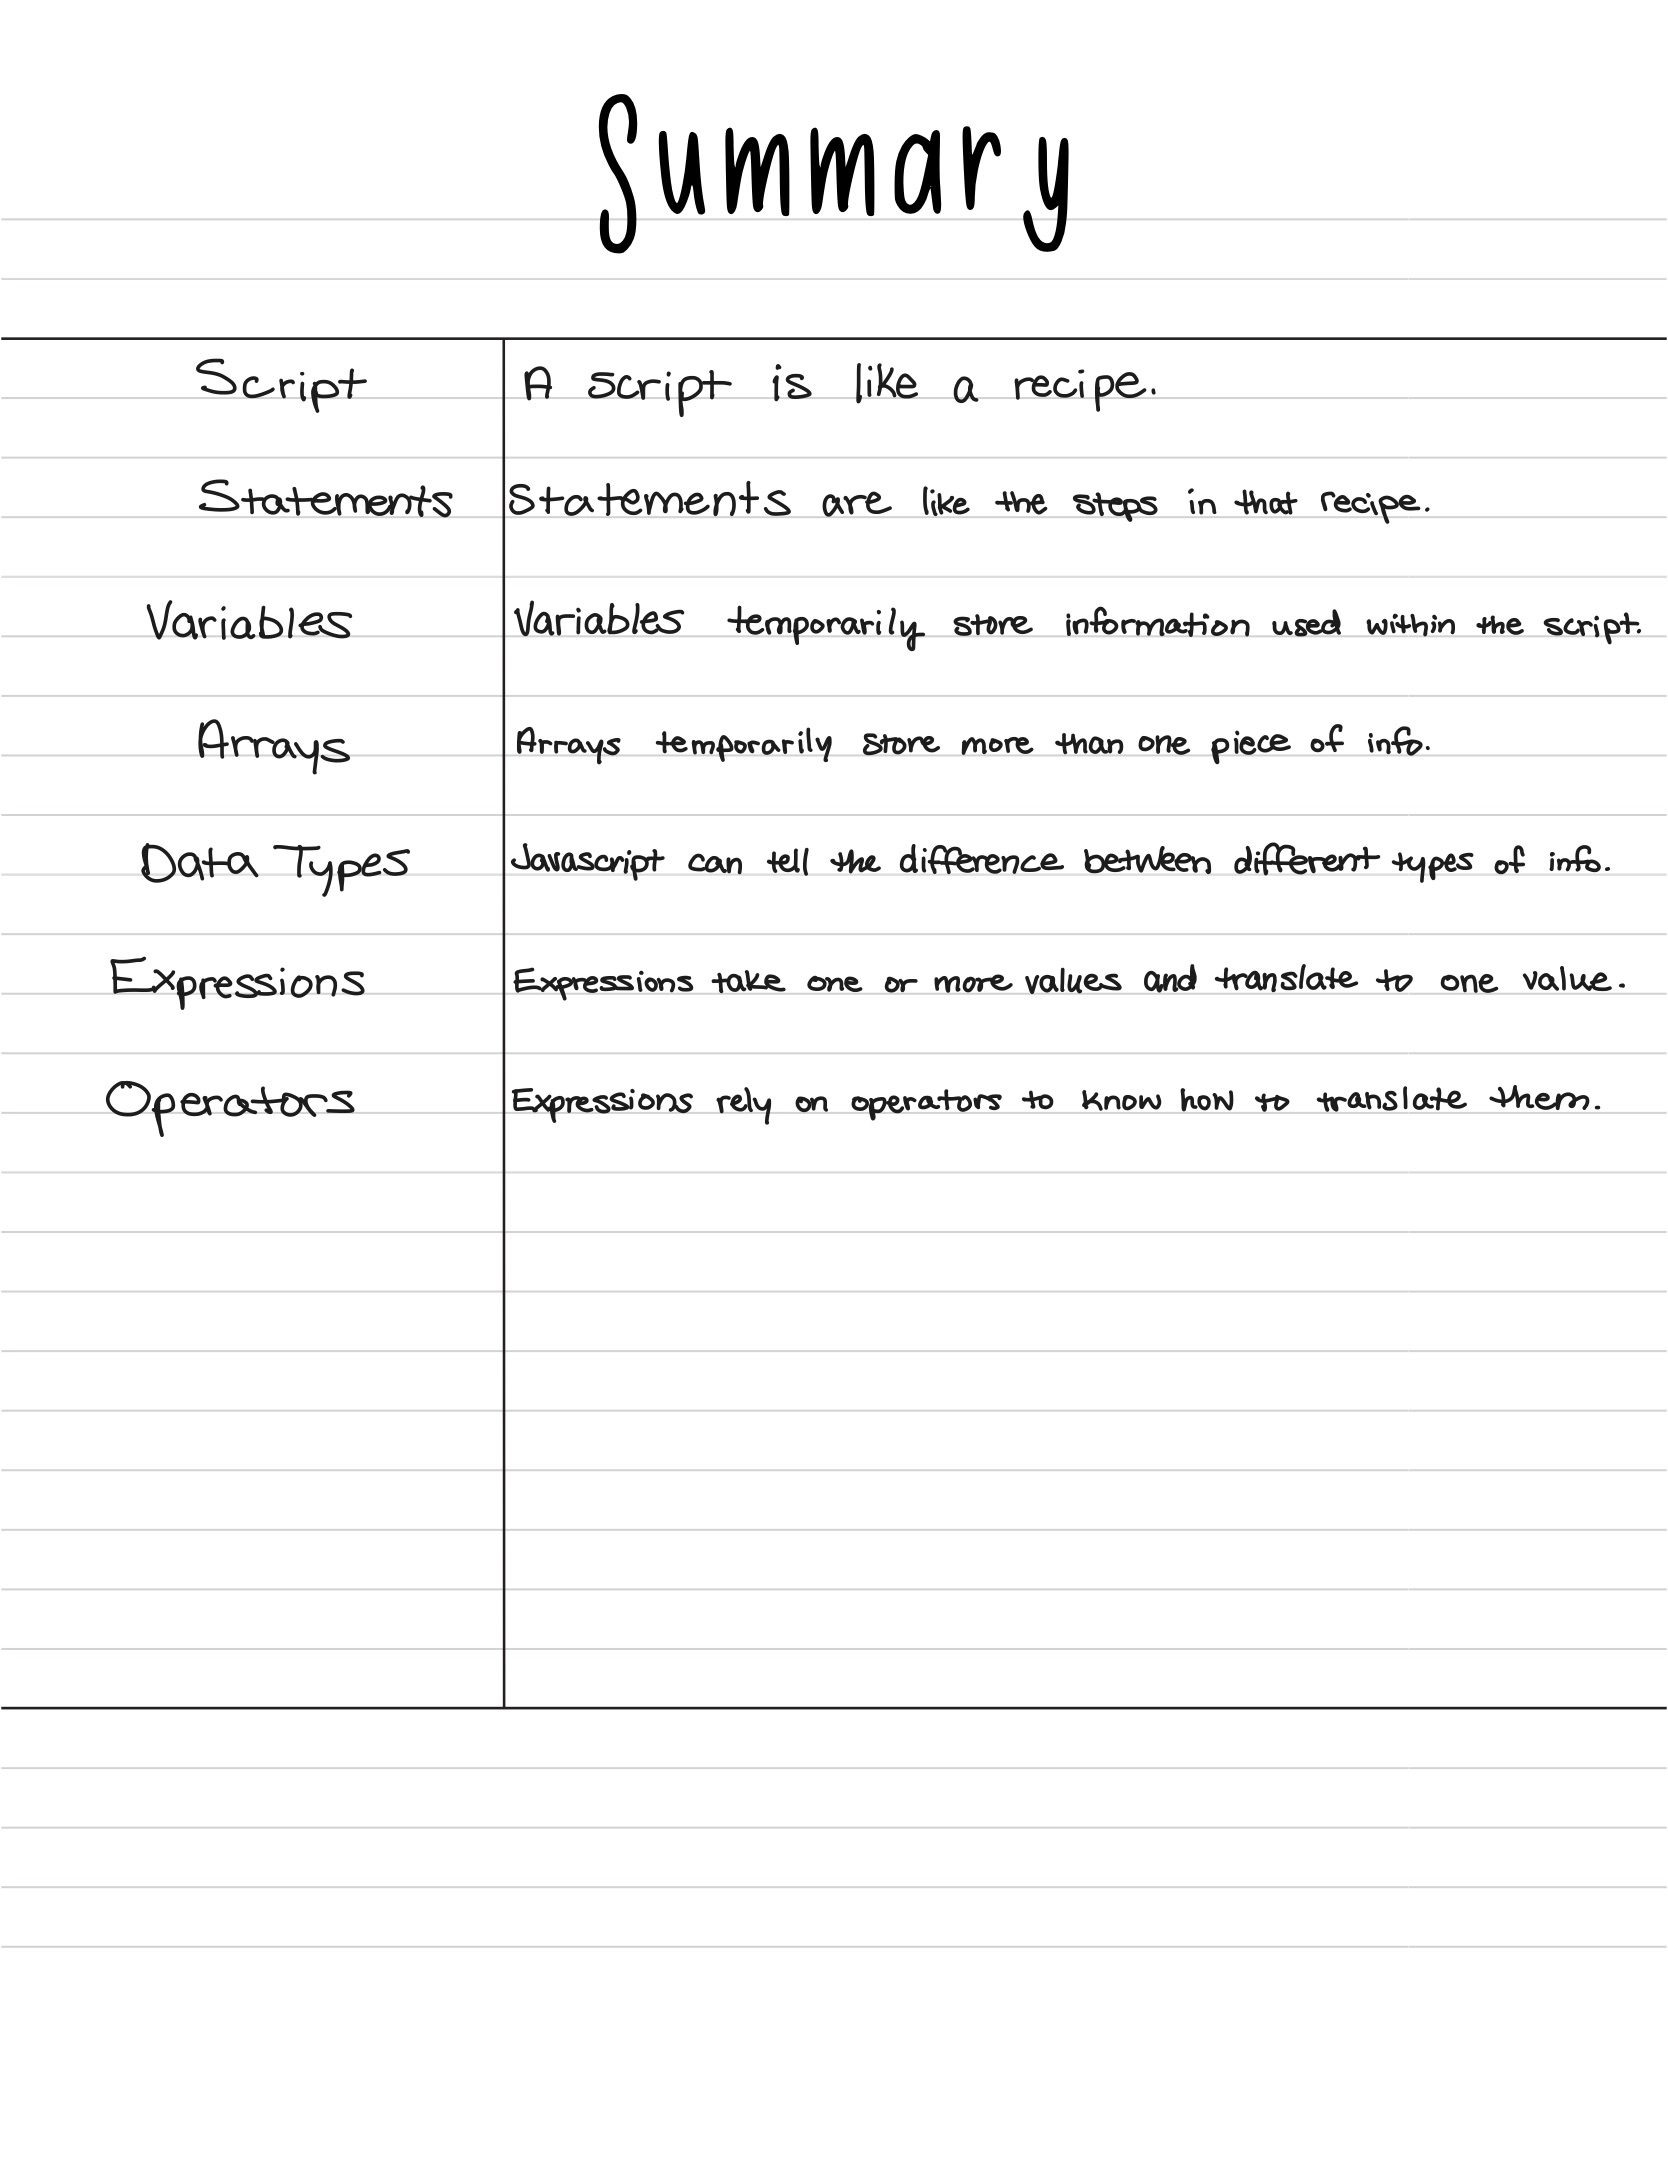 Summary
Script A script is like a recipe.
Statements Statements are like the steps in that recipe.
Variables Variables temporarily store information used within the script.
Arrays Arrays temporarily store more than one piece of info.
Data Types Javascript can tell the difference between different types of info.
Expressions Expressions take one or more values and translate to one value.
Operators Expressions rely on operators to know how to translate them.